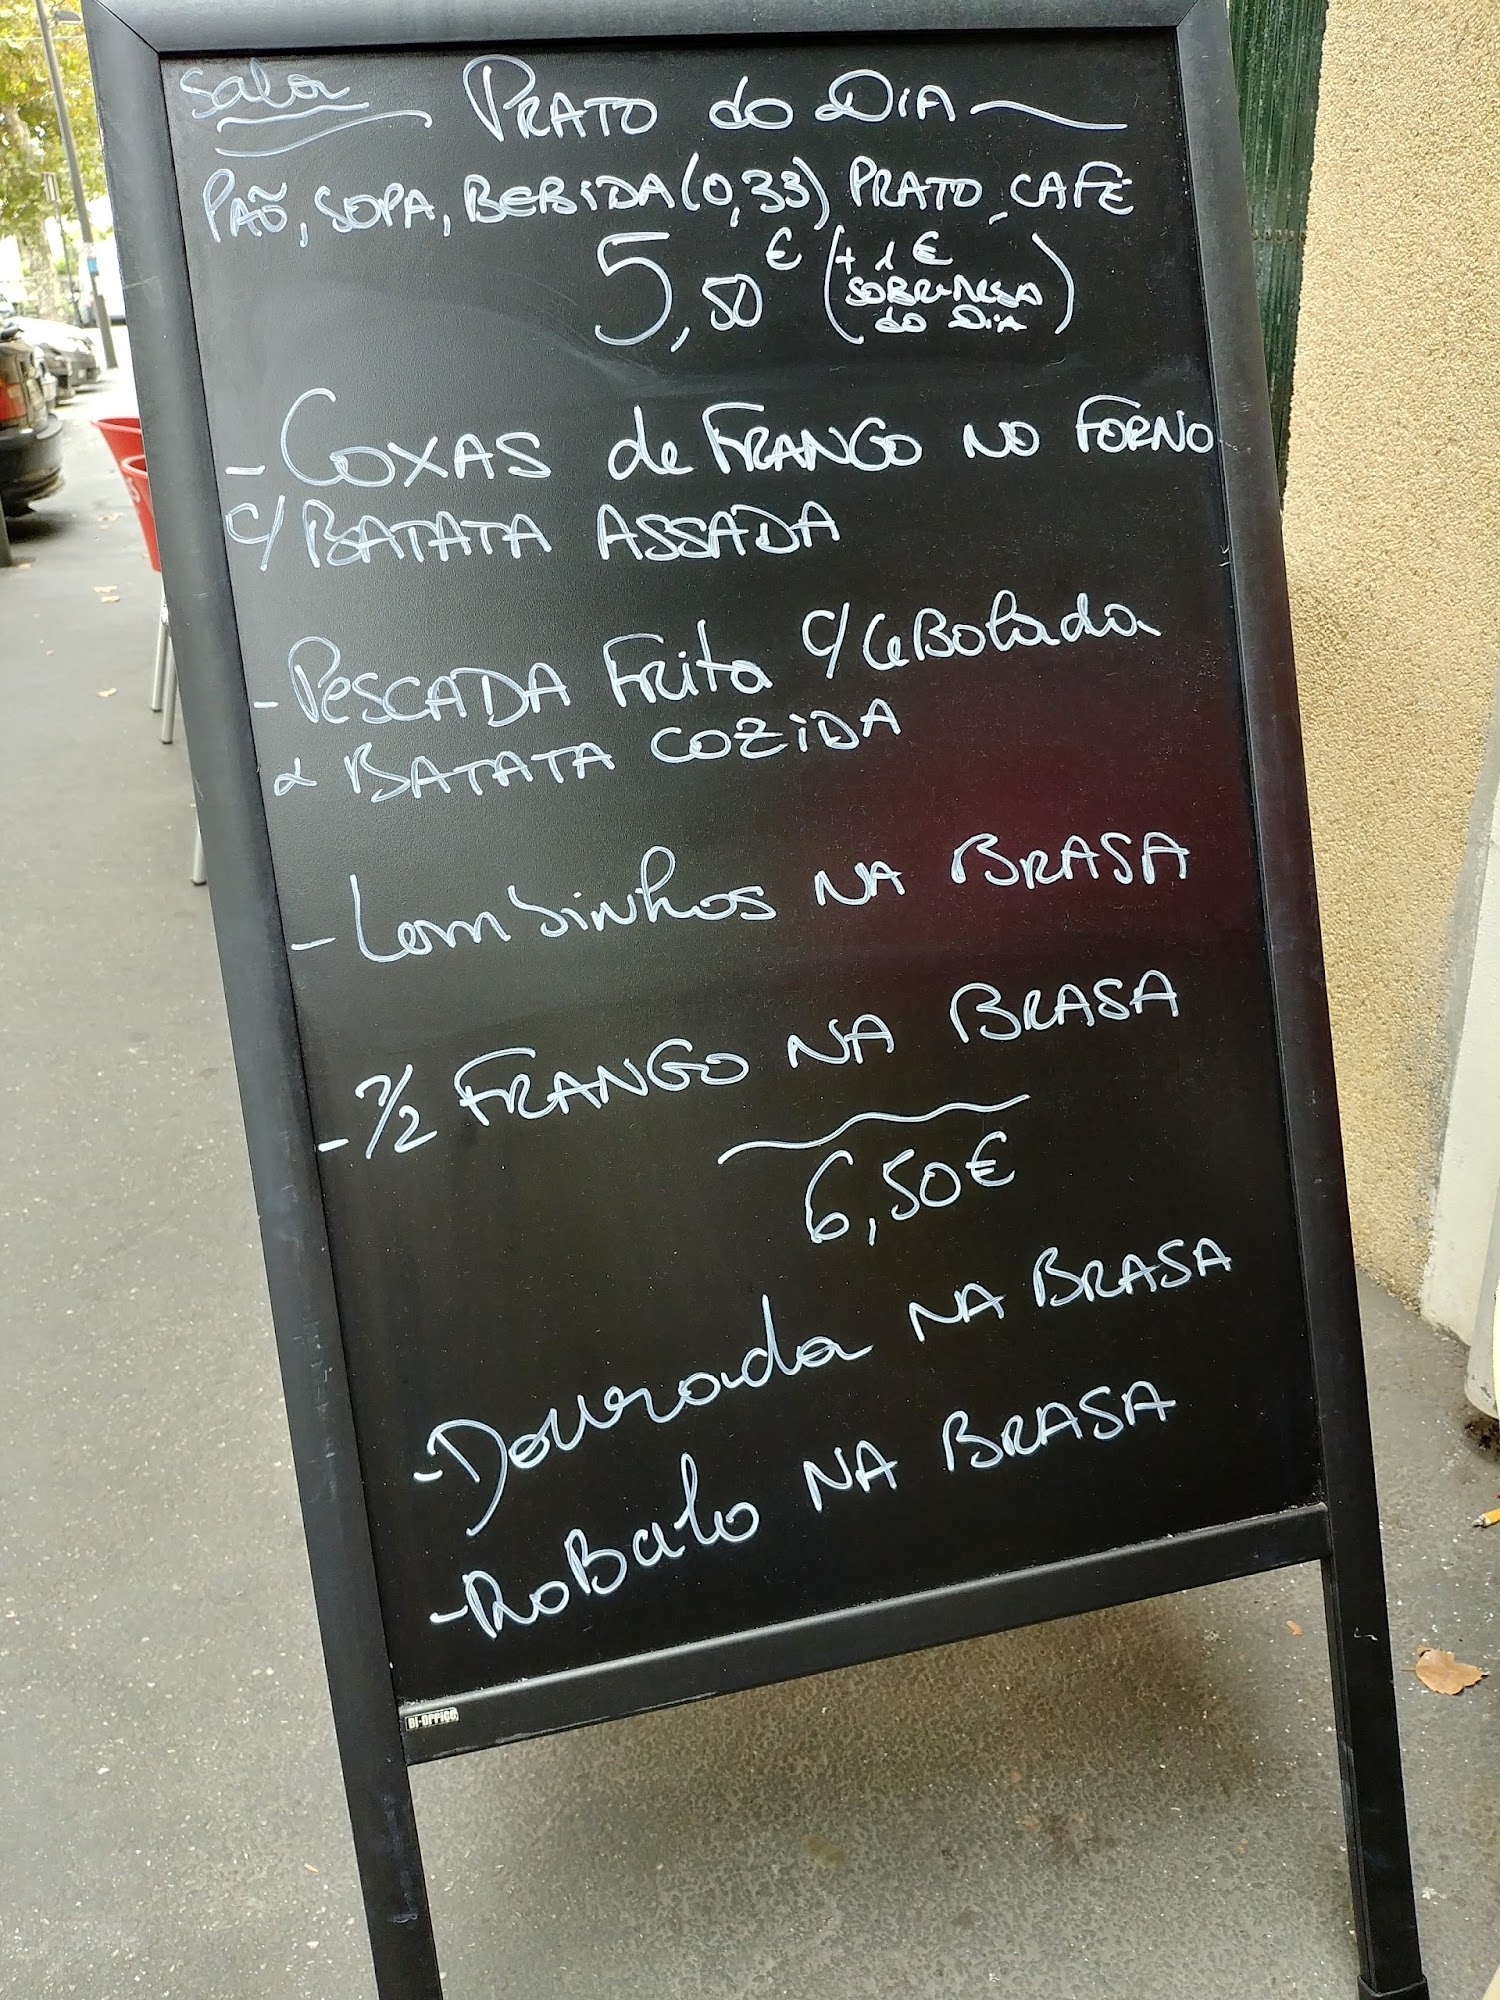 Sala
PRATO do DIA
PAÕ, SOPA, BEBIDA (0,33) PRATO, CAFÉ
5,50€ (+1€
SOBREMESA
do DIA)
- COXAS de FRANGO NO FORNO
C/ BATATA ASSADA
- PESCADA Frita C/ CeBolada
& BATATA COZIDA
- Lombinhos NA BRASA
- 1/2 FRANGO NA BRASA
6,50€
- Dourada NA BRASA
- RoBalo NA BRASA
BI-OFFICE